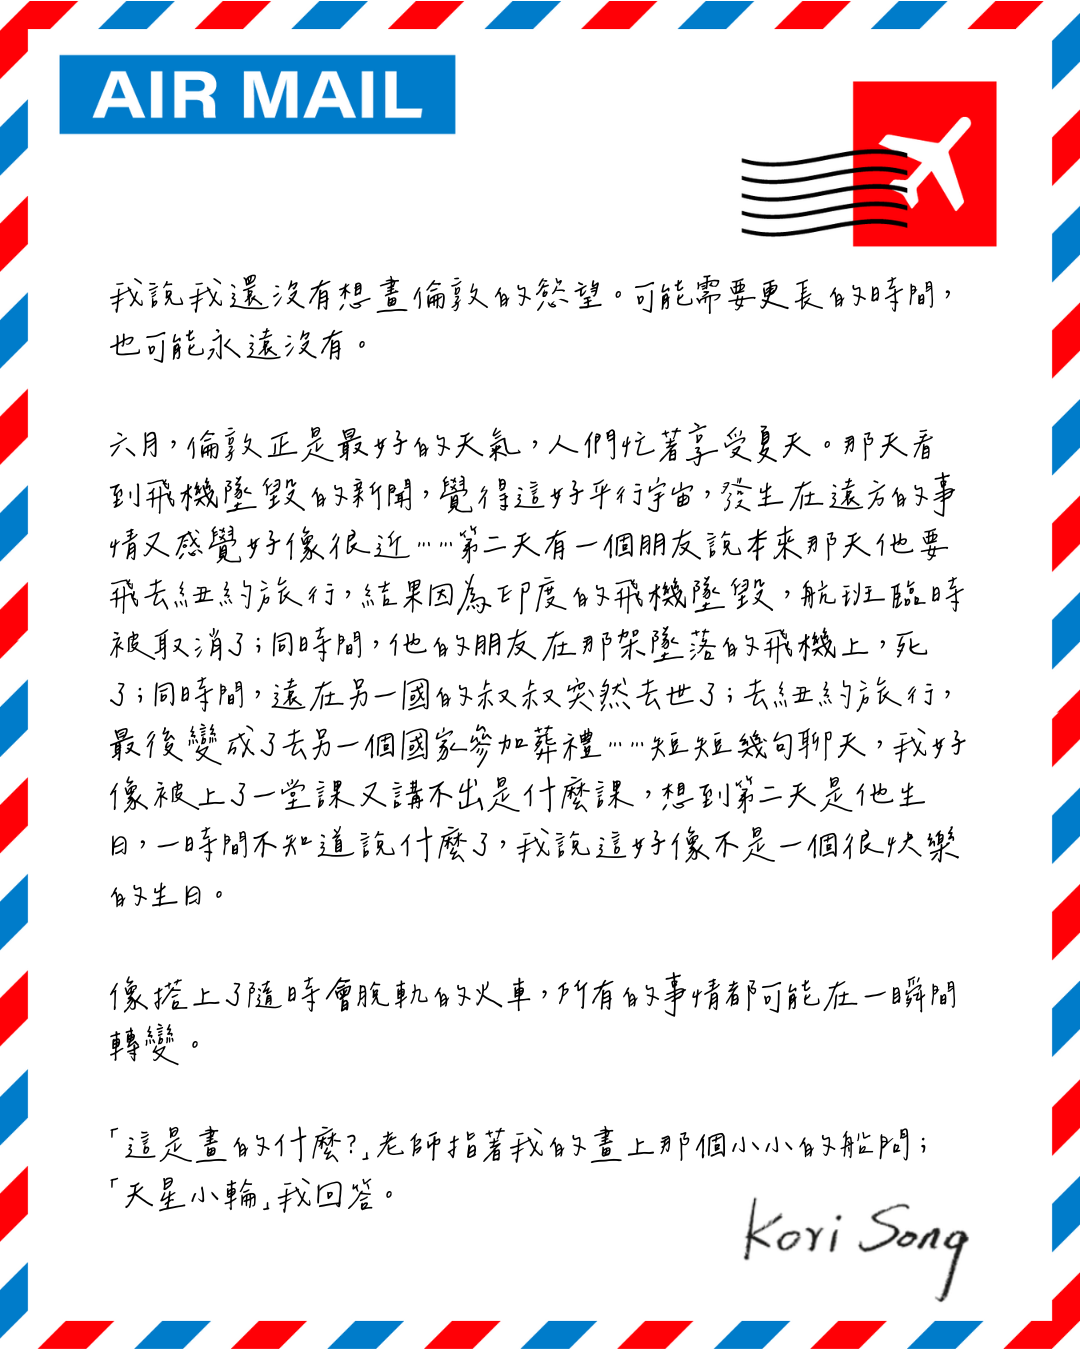 AIR MAIL
我說我還沒有想畫倫敦的慾望。可能需要更長的時間，
也可能永遠沒有。
六月，倫敦正是最好的天氣，人們忙著享受夏天。那天看
到飛機墜毀的新聞，覺得這好平行宇宙，發生在遠方的事
情又感覺好像很近……第二天有一個朋友說本來那天他要
飛去紐約旅行，結果因為印度的飛機墜毀，航班臨時
被取消了；同時間，他的朋友在那架墜落的飛機上，死
了；同時間，遠在另一國的叔叔突然去世了；去紐約旅行，
最後變成了去另一個國家參加葬禮……短短幾句聊天，我好
像被上了一堂課又講不出是什麼課，想到第二天是他生
日，一時間不知道說什麼了，我說這好像不是一個很快樂
的生日。
像搭上了隨時會脫軌的火車，所有的事情都可能在一瞬間
轉變。
「這是畫的什麼？」老師指著我的畫上那個小小的船問；
「天星小輪」我回答。
Kori Song